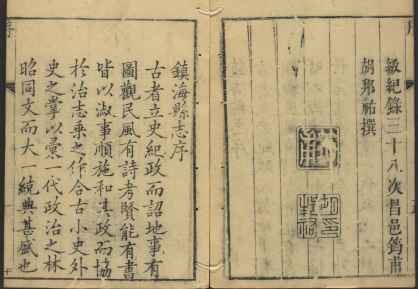 級紀錄三十八次昌邑筠甫
胡邦祐撰
鎮海縣志序
古者立史紀政而詔地事有
圖觀民風有詩考賢能有書
皆以淑事順施和其政而協
於治志乘之作合古小史外
史之掌以彙一代政治之林
昭同文而大一統典甚盛也